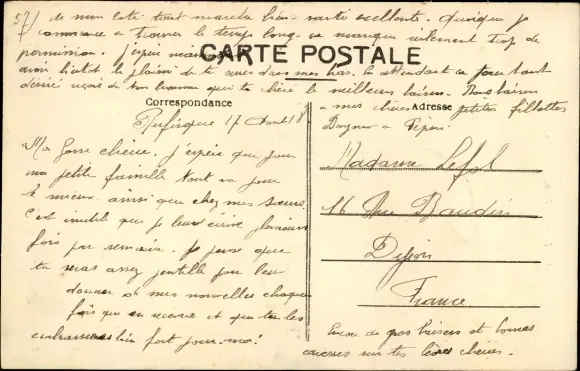 57/ de mon côté tout marche bien - santé excellente. Quoique je
commence à trouver le temps long - ça manque réellement trop de
permission. J'espère
CARTE POSTALE
avoir bientôt le plaisir de te serrer dans mes bras. En attendant ce jour tant
désiré reçois de ton homme qui te chéri les meilleurs baisers. Bons baisers
Correspondance
à mes chères petites fillettes
Adresse
Rufisque 17 Août 18
Bonjour à Pépère.
Ma Gosse chérie, j'espère que pour
ma petite famille tout va pour
le mieux, ainsi que chez mes sœurs.
C'est inutile que je leur écrive plusieurs
fois par semaine. Je pense que
tu seras assez gentille pour leur
donner de mes nouvelles chaque
fois que tu en recevra et que tu les
embrasseras bien fort pour moi!
Madame
16 Rue Baudin
Dijon
France
Encore de gros baisers et bonnes
caresses sur tes lèvres chéries.